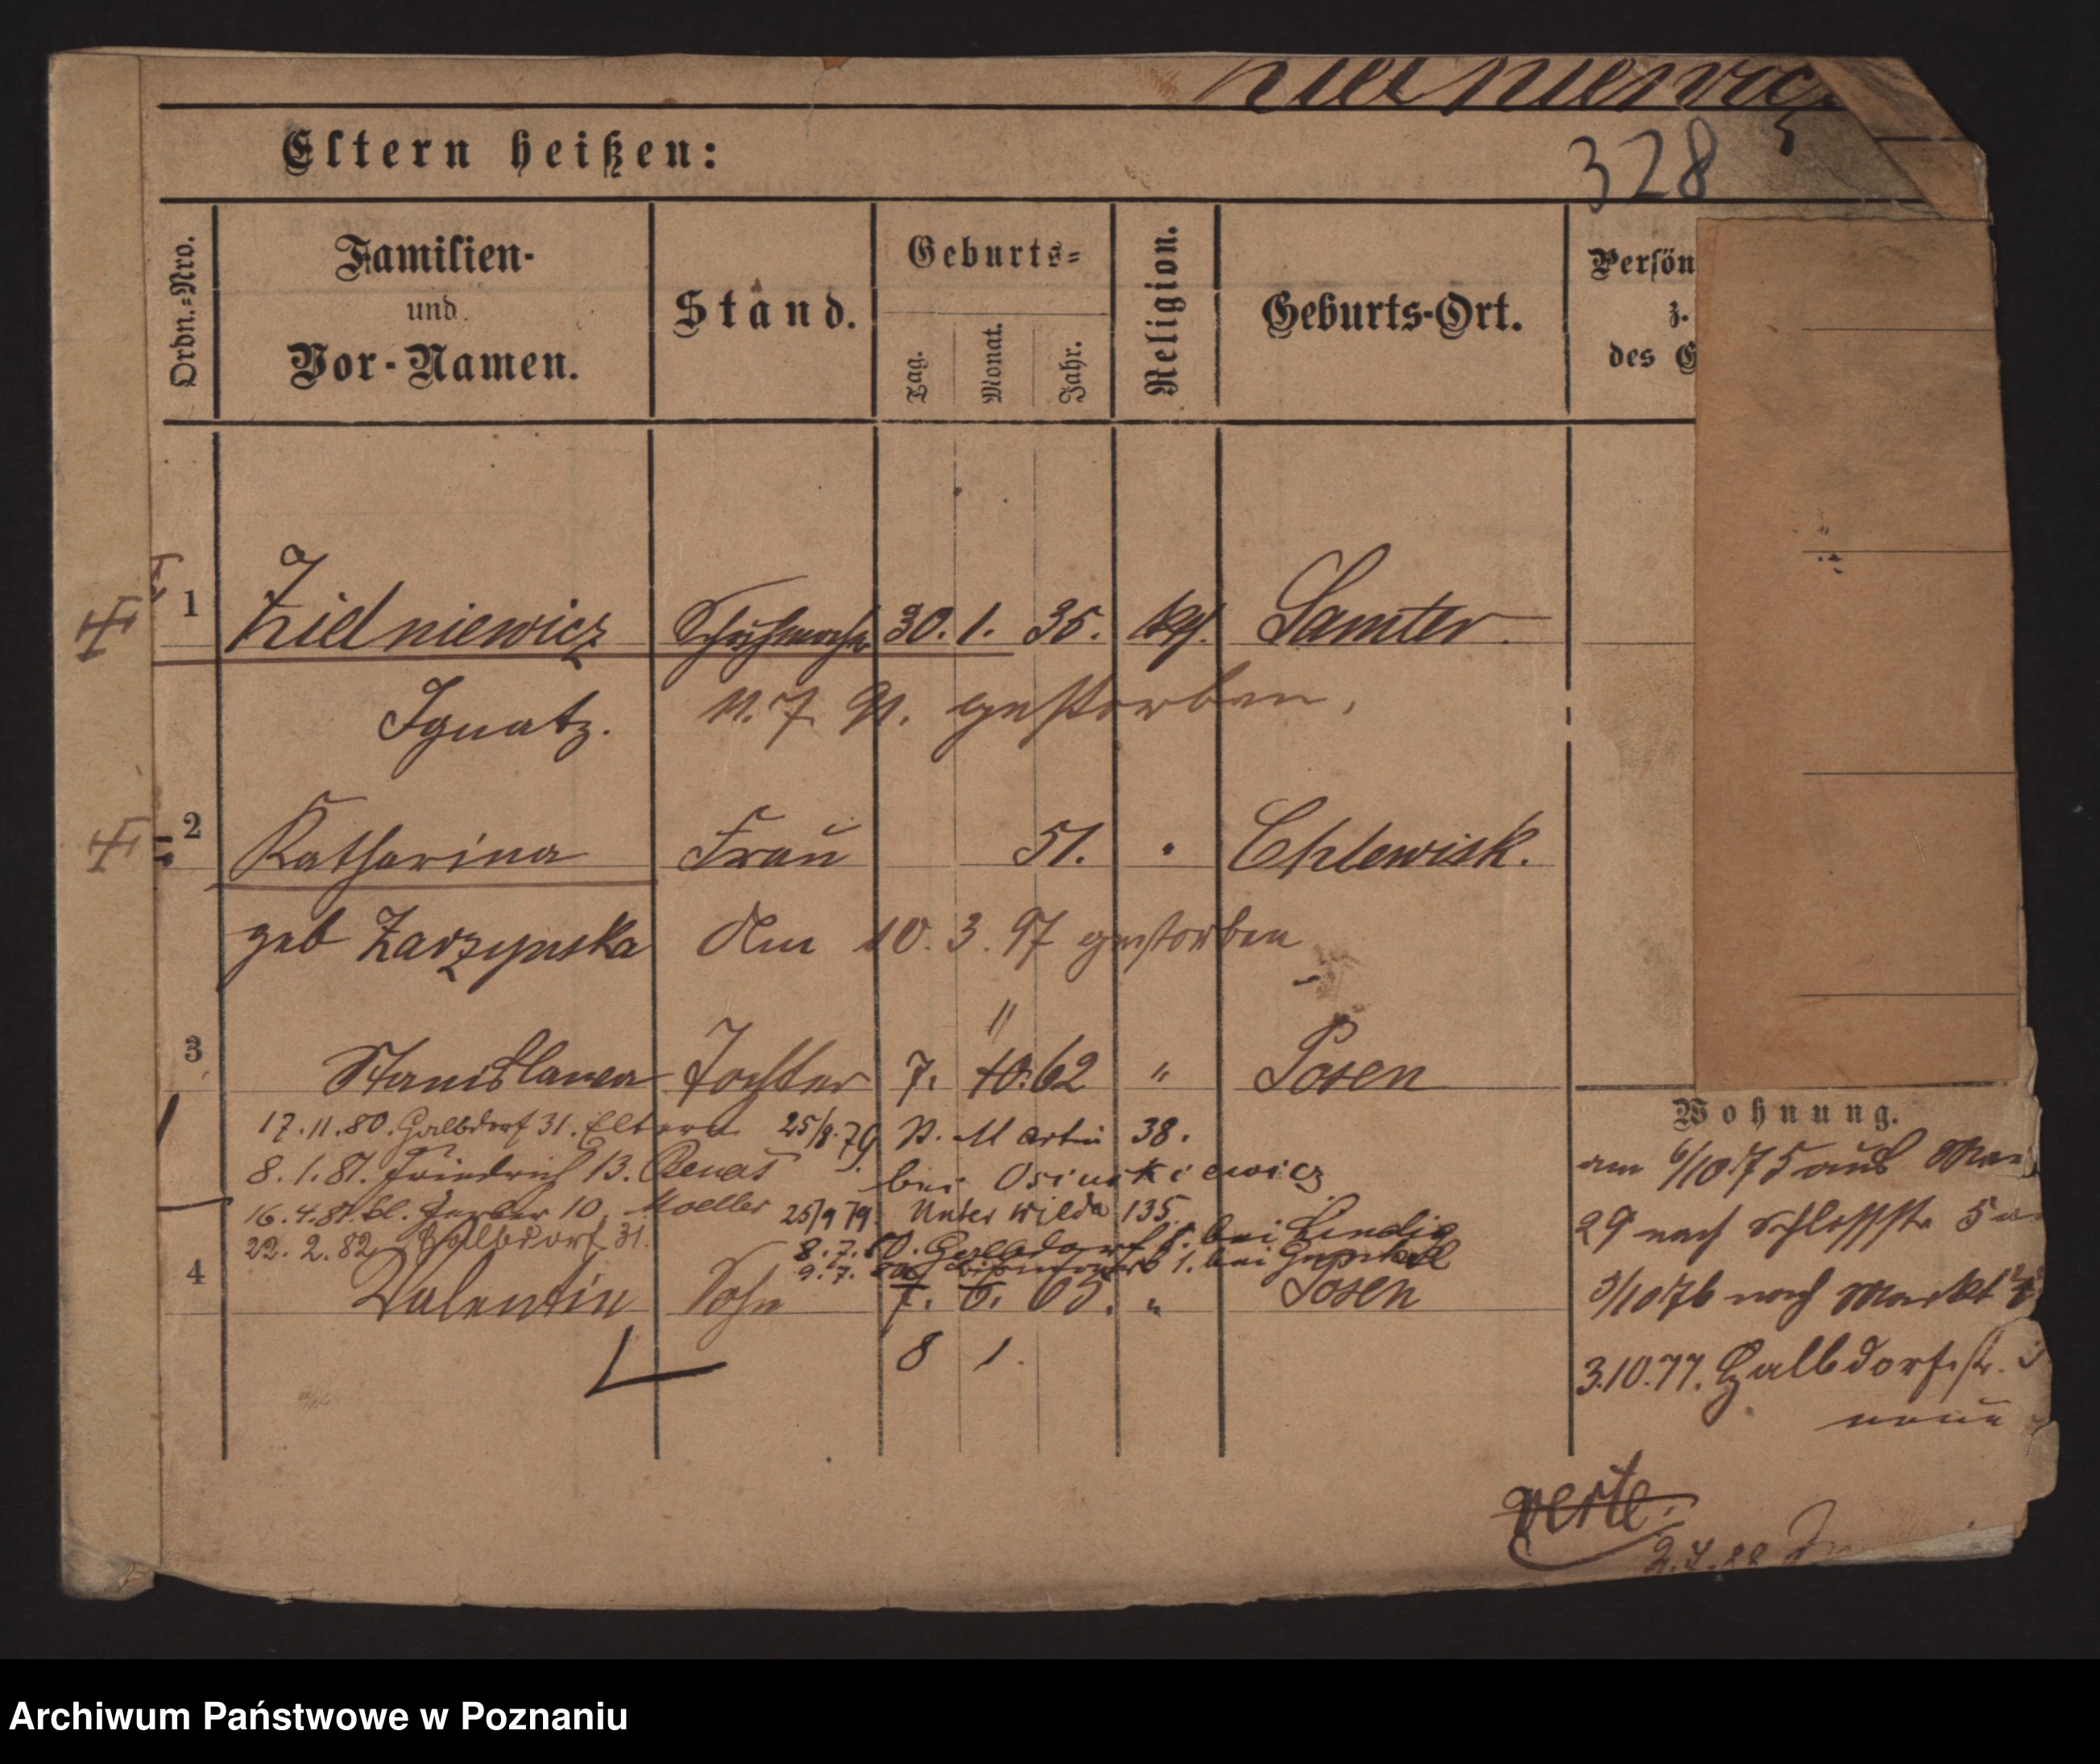 Zielniewicz
328
Eltern heißen:
Ordn.=Nro.
Familien-
und
Vor-Namen.
Stand.
Geburts=
Tag.
Monat.
Jahr.
Religion.
Geburts-Ort.
Persön
z.
des
1 Zielniewicz Schuhmacher 30. 1. 35. kth. Samter.
Ignatz. 11. 7. 91. gestorben,
2 Katharina Frau 51. " Chlewisk.
geb Zarzynska Am 10. 3. 97 gestorben
11
3 Stanislawa Tochter 7. 10. 62 " Posen
17.11.80. Halbdorf 31. Eltern 25/8. 79 St. Martin 38.
8.1.81. Friedrich 13. bei Osinskiewicz
16.4.81. kl. Gerber 10. Moeller 25/9 79. Unter Wilda 135
22.2.82 Halbdorf 31.
8.7.80. Halbdorf bei
9.7. 1. bei
4 Valentin Sohn 7. 6. 65. " Posen
8 1.
Wohnung.
am 6/10 75 aus
29 nach Schlossstr 5
3/10 76 nach Markt
3.10.77. Halbdorfstr.
neue
verte.
2.7.88
Archiwum Państwowe w Poznaniu